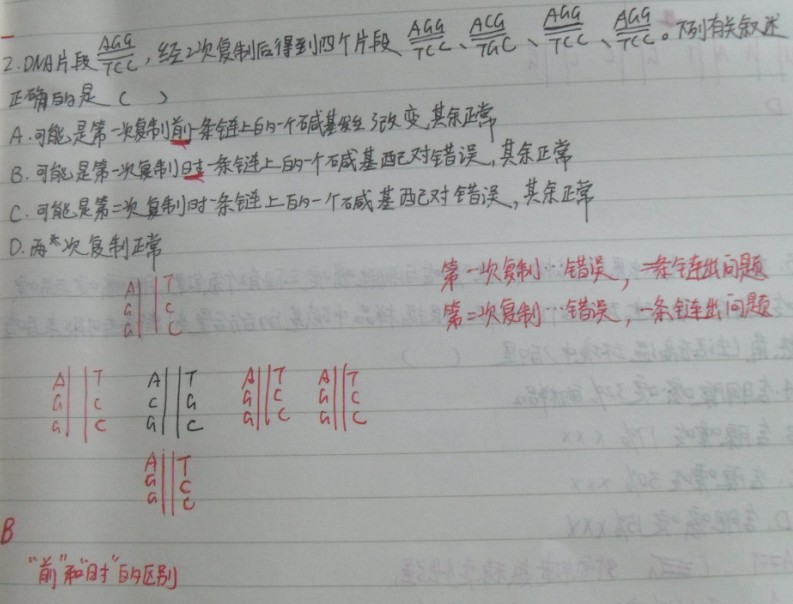 2.DNA片段 AGG/TCC,经2次复制后得到四个片段、AGG/TCC、ACG/TGC、AGG/TCC、AGG/TCC。下列有关叙述
正确的是( )
A.可能是第一次复制前一条链上的一个碱基发生了改变,其余正常
B.可能是第一次复制时一条链上的一个碱基配对错误,其余正常
C.可能是第二次复制时一条链上的一个碱基配对错误,其余正常
D.两次复制正常
A T
G C
G C
第一次复制…错误,一条链出问题
第二次复制…错误,一条链出问题
A T A T A T A T
G C C G G C G C
G C G C G C G C
A T
G C
G C
B
"前"和"时"的区别